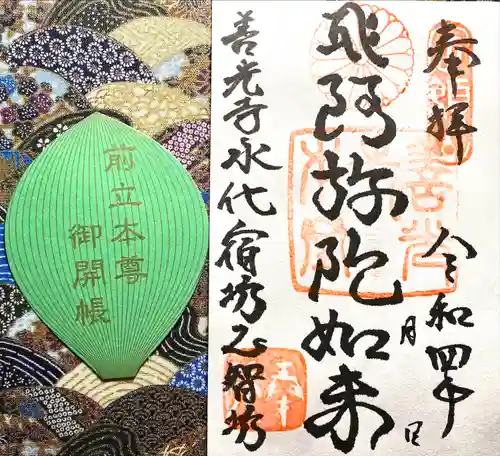 奉拝
令和四年
月
日
阿弥陀如来
善光寺永代宿坊正智坊
前立本尊
御開帳